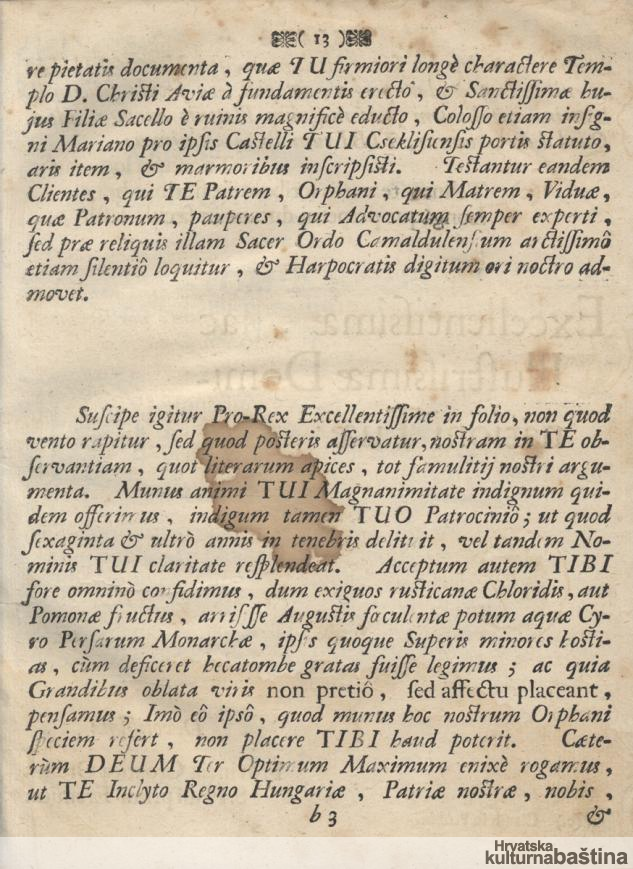 ( 13 )
re pietatis documenta, quæ TU firmiori longè charactere Tem-
plo D. Christi Aviæ è fundamentis erecto, & Sanctissimæ hu-
jus Filiæ Sacello è ruinis magnificè educto, Colosso etiam insig-
ni Mariano pro ipsis Castelli TUI Cseklisiensis portis statuto,
aris item, & marmoribus inscripsisti. Testantur eandem
Clientes, qui TE Patrem, Orphani, qui Matrem, Viduæ,
quæ Patronum, pauperes, qui Advocatum semper experti,
sed præ reliquis illam Sacer Ordo Camaldulensium arctissimô
etiam silentiô loquitur, & Harpocratis digitum ori noctro ad-
movet.
Suscipe igitur Pro-Rex Excellentissime in folio, non quod
vento rapitur, sed quod posteris asservatur, nostram in TE ob-
servantiam, quot literarum apices, tot famulitij nostri argu-
menta. Munus animi TUI Magnanimitate indignum qui-
dem offerimus, indigum tamen TUO Patrociniô; ut quod
sexaginta & ultrò annis in tenebris delituit, vel tandem No-
minis TUI claritate resplendeat. Acceptum autem TIBI
fore omninò confidimus, dum exiguos rusticanæ Chloridis, aut
Pomonæ fructus, arrisisse Augustis fæculentæ potum aquæ Cy-
ro Persarum Monarchæ, ipsis quoque Superis minores hosti-
as, cùm deficeret hecatombe gratas fuisse legimus; ac quia
Grandibus oblata viris non pretiô, sed affectu placeant,
pensamus; Imò eô ipsô, quod munus hoc nostrum Orphani
speciem refert, non placere TIBI haud poterit. Cæte-
rùm DEUM Ter Optimum Maximum enixè rogamus,
ut TE Inclyto Regno Hungariæ, Patriæ nostræ, nobis,
b 3 &
Hrvatska
kulturnabaština